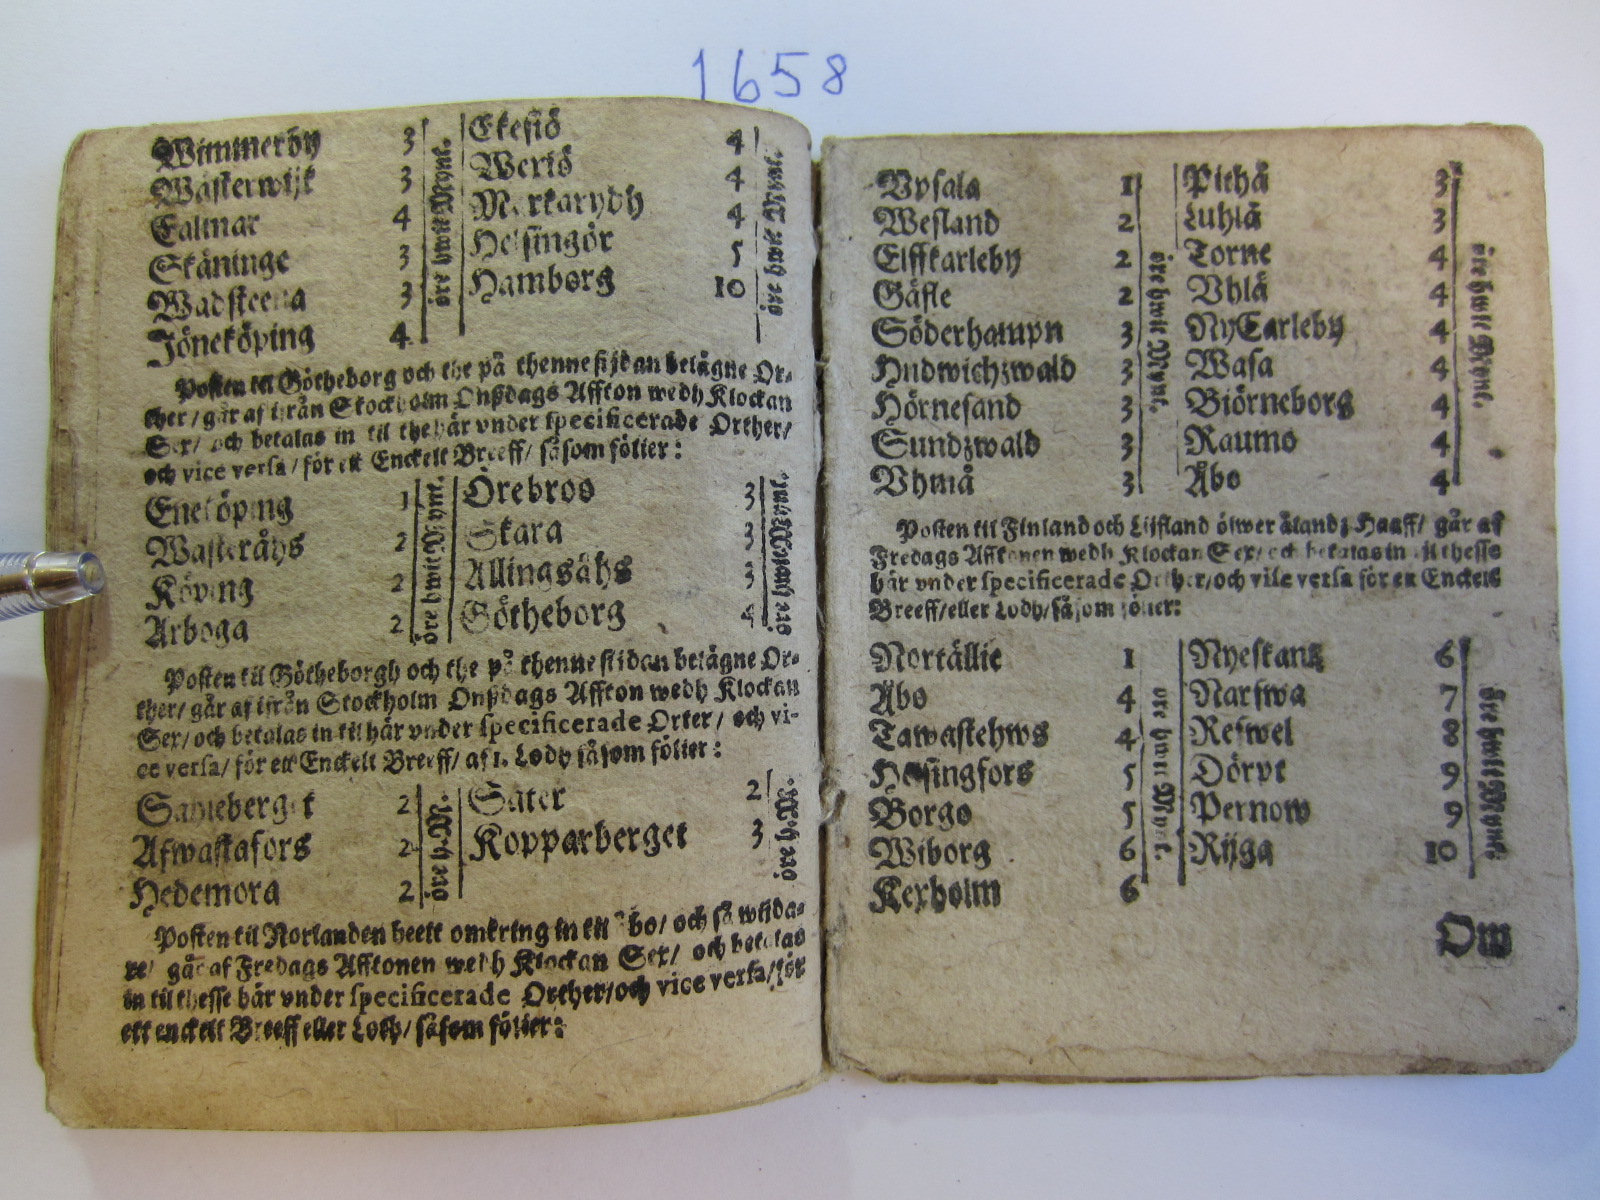 1658
Wimmerby 3
Wästerwijk 3
Calmar 4
Skäninge 3
Wadsteena 3
Jöneköping 4
öre hwit Mynt.
Ekesiö 4
Wexiö 4
Markarydh 4
Helsingör 5
Hamborg 10
öre hwit Mynt.
Posten til Götheborg och the på thenne sijdan belägne Or-
ther/ går af ifrån Stockholm Onßdags Affton wedh Klockan
Sex/ och betalas in til the här vnder specificerade Orther/
och vice versa/ för ett Enckelt Breeff/ såsom fölier:
Eneköping 1
Wasteråhs 2
Köping 2
Arboga 2
öre hwit Mynt.
Örebroo 3
Skara 3
Allingsåhs 3
Götheborg 4
öre hwit Mynt.
Posten til Götheborgh och the på thenne sijdan belägne Or-
ther/ går af ifrån Stockholm Onßdags Affton wedh Klockan
Sex/ och betalas in til här vnder specificerade Orter/ och vi-
ce versa/ för ett Enckelt Breeff/ af 1. Lody såsom fölier:
Sahleberget 2
Afwastafors 2
Hedemora 2
öre h. M.
Säter 2
Kopparberget 3
öre h. M.
Posten til Norlanden heelt omkring in till Åbo/ och så wijda-
re/ går af Fredags Afftonen wedh Klockan Sex/ och betalas
in til thesse här vnder specificerade Orther/och vice versa/för
ett enckelt Breeff eller Lody/ såsom fölier:
Vpsala 1
Wesland 2
Elffkarleby 2
Gäfle 2
Söderhampn 3
Hudwichzwald 3
Hörnesand 3
Sundzwald 3
Vhmå 3
öre hwit Mynt.
Pithå 3
Luhlå 3
Torne 4
Vhlå 4
NyCarleby 4
Wasa 4
Biörneborg 4
Raumo 4
Åbo 4
öre hwit Mynt.
Posten til Finland och Lijfland öfwer ålandz Haaff/ går af
Fredags Afftonen wedh Klockan Sex/ och betalas in til thesse
här vnder specificerade Orther/och vise versa för en Enckelt
Breeff/eller Lody/såsom fölier:
Nortällie 1
Åbo 4
Tawastehws 4
Helsingfors 5
Borgo 5
Wiborg 6
Kexholm 6
öre hwit Mynt.
Nyeskantz 6
Narfwa 7
Refwel 8
Dörpt 9
Pernow 9
Rijga 10
öre hwit Mynt.
Om